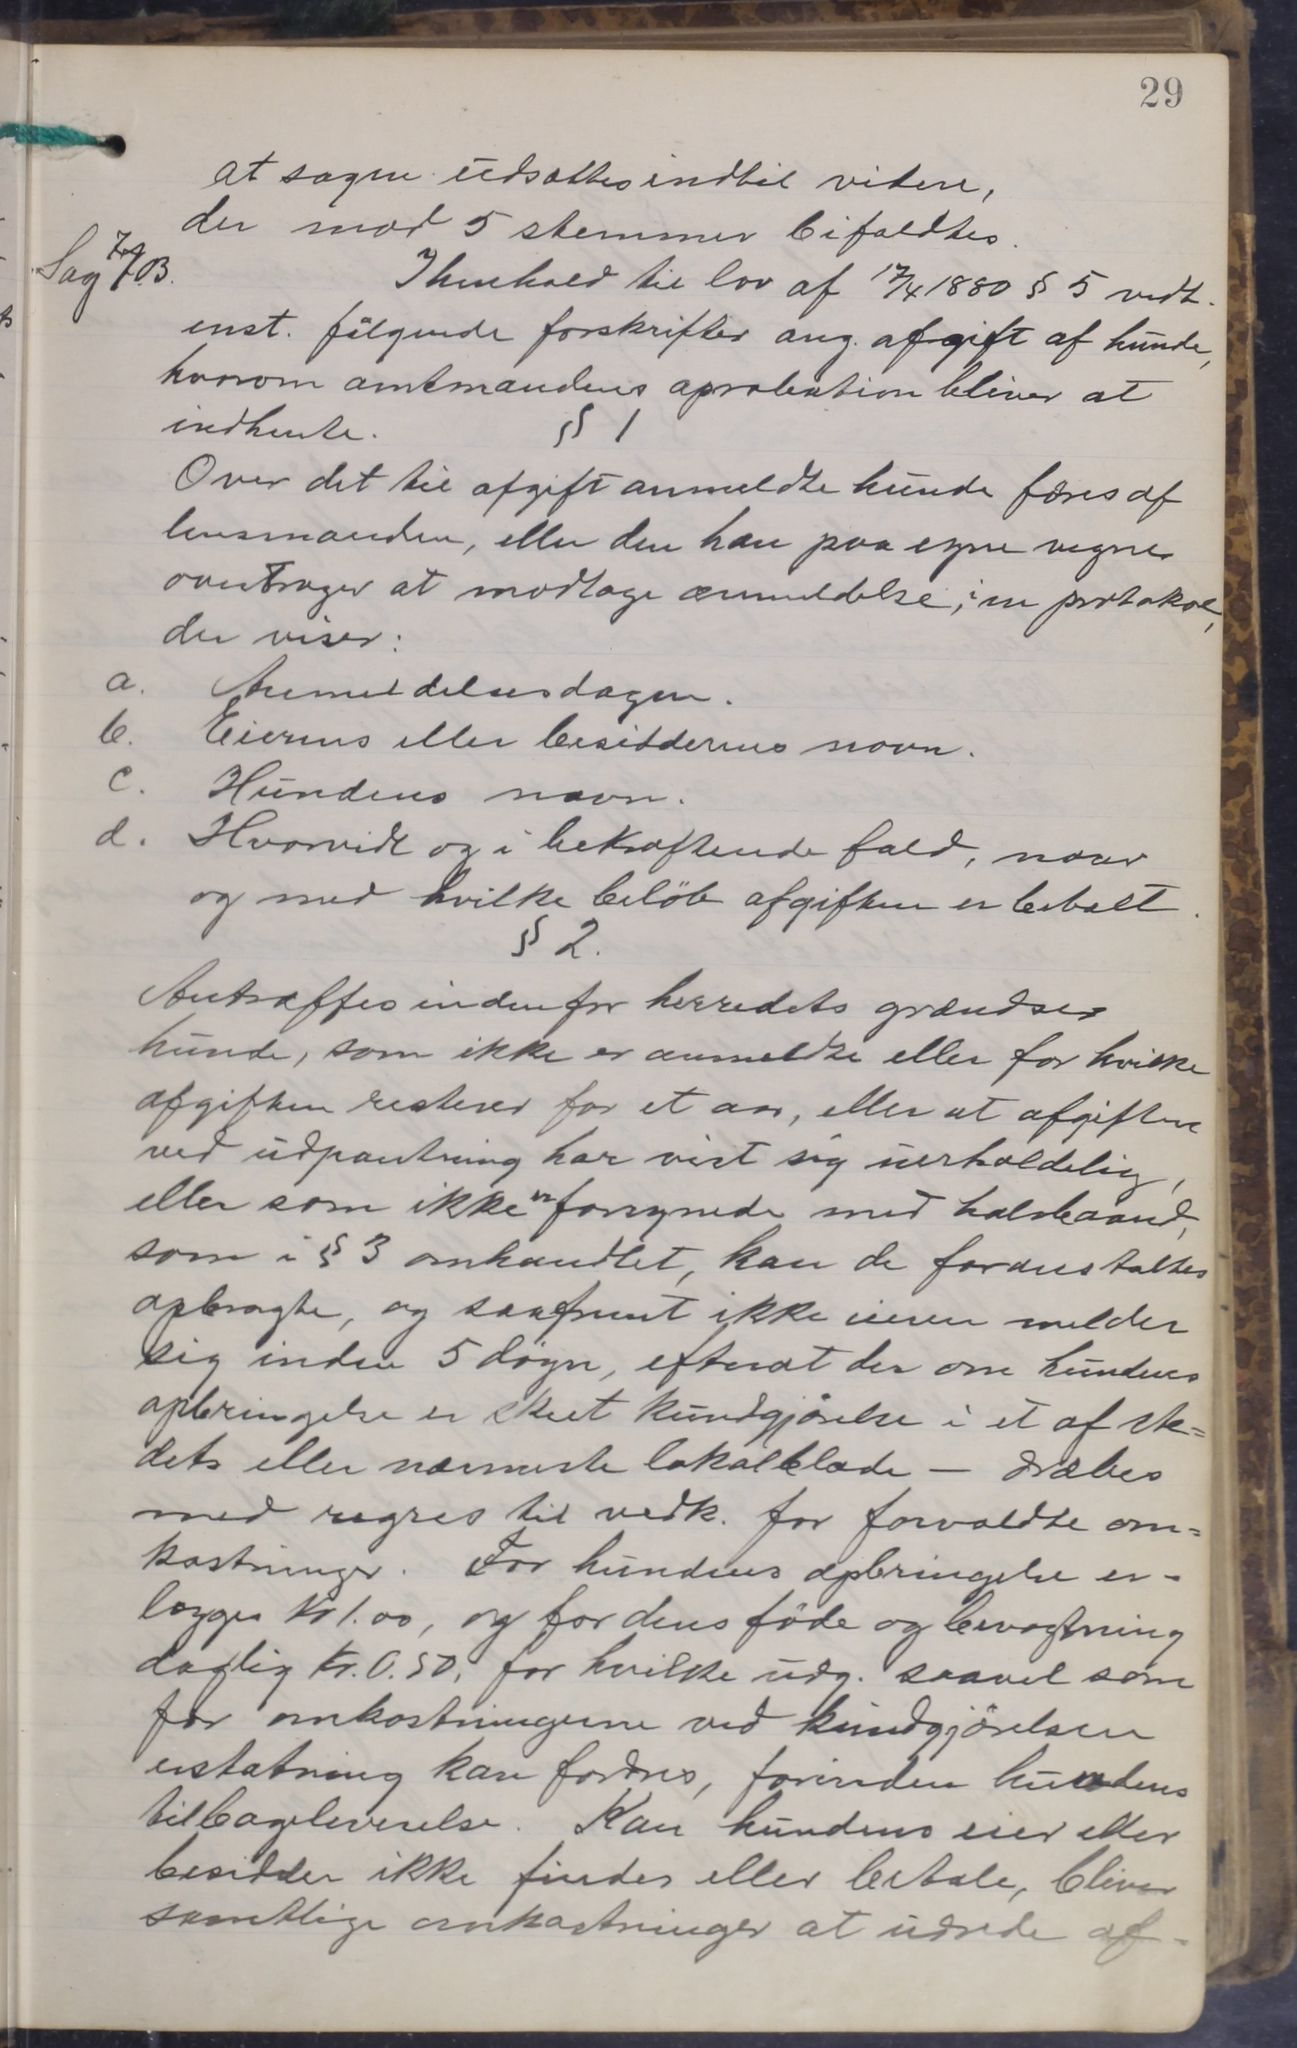 29
at sagen udsættes indtil videre,
der mod 5 stemmer bifaldtes.
Sag 7B.
I henhold til lov af 17/4 1880 § 5 vedt.
enst. følgende forskrifter ang. afgift af hunde,
hvorom amtmandens aprobation bliver at
indhente. § 1
Over det til afgift anmeldte hunde føres af
lensmanden, eller den han paa egne vegne
overdrager at modtage anmeldelse, en protokol,
der viser:
a. Anmeldelsesdagen.
b. Eierens eller besidderens navn.
c. Hundens navn.
d. Hvorvidt og i bekræftende fald, naar
og med hvilke beløb afgiften er betalt.
§ 2.
Antræffes indenfor herredets grændser
hunde, som ikke er anmeldte eller for hvilke
afgiften resterer for et aar, eller at afgiften
ved udpantning har vist sig uerholdelig,
eller som ikke er forsynede med halsbaand,
som i § 3 omhandlet, kan de foranstaltes
opbragte, og saafremt ikke eieren melder
sig inden 5 døgn, efterat der om hundens
opbringelse er skeet kundgjørelse i et af ste=
dets eller nærmeste lokalblade — dræbes
med regres til vedk. for forvoldte om=
kostninger. For hundens opbringelse er-
lægges kr 1.00, og for dens føde og bevogtning
daglig kr. 0.50, for hvilke udg. saavel som
for omkostningerne ved kundgjørelsen
erstatning kan fordres, forinden hundens
tilbageleverelse. Kan hundens eier eller
besidder ikke findes eller betale, bliver
samtlige omkostninger at udrede af-